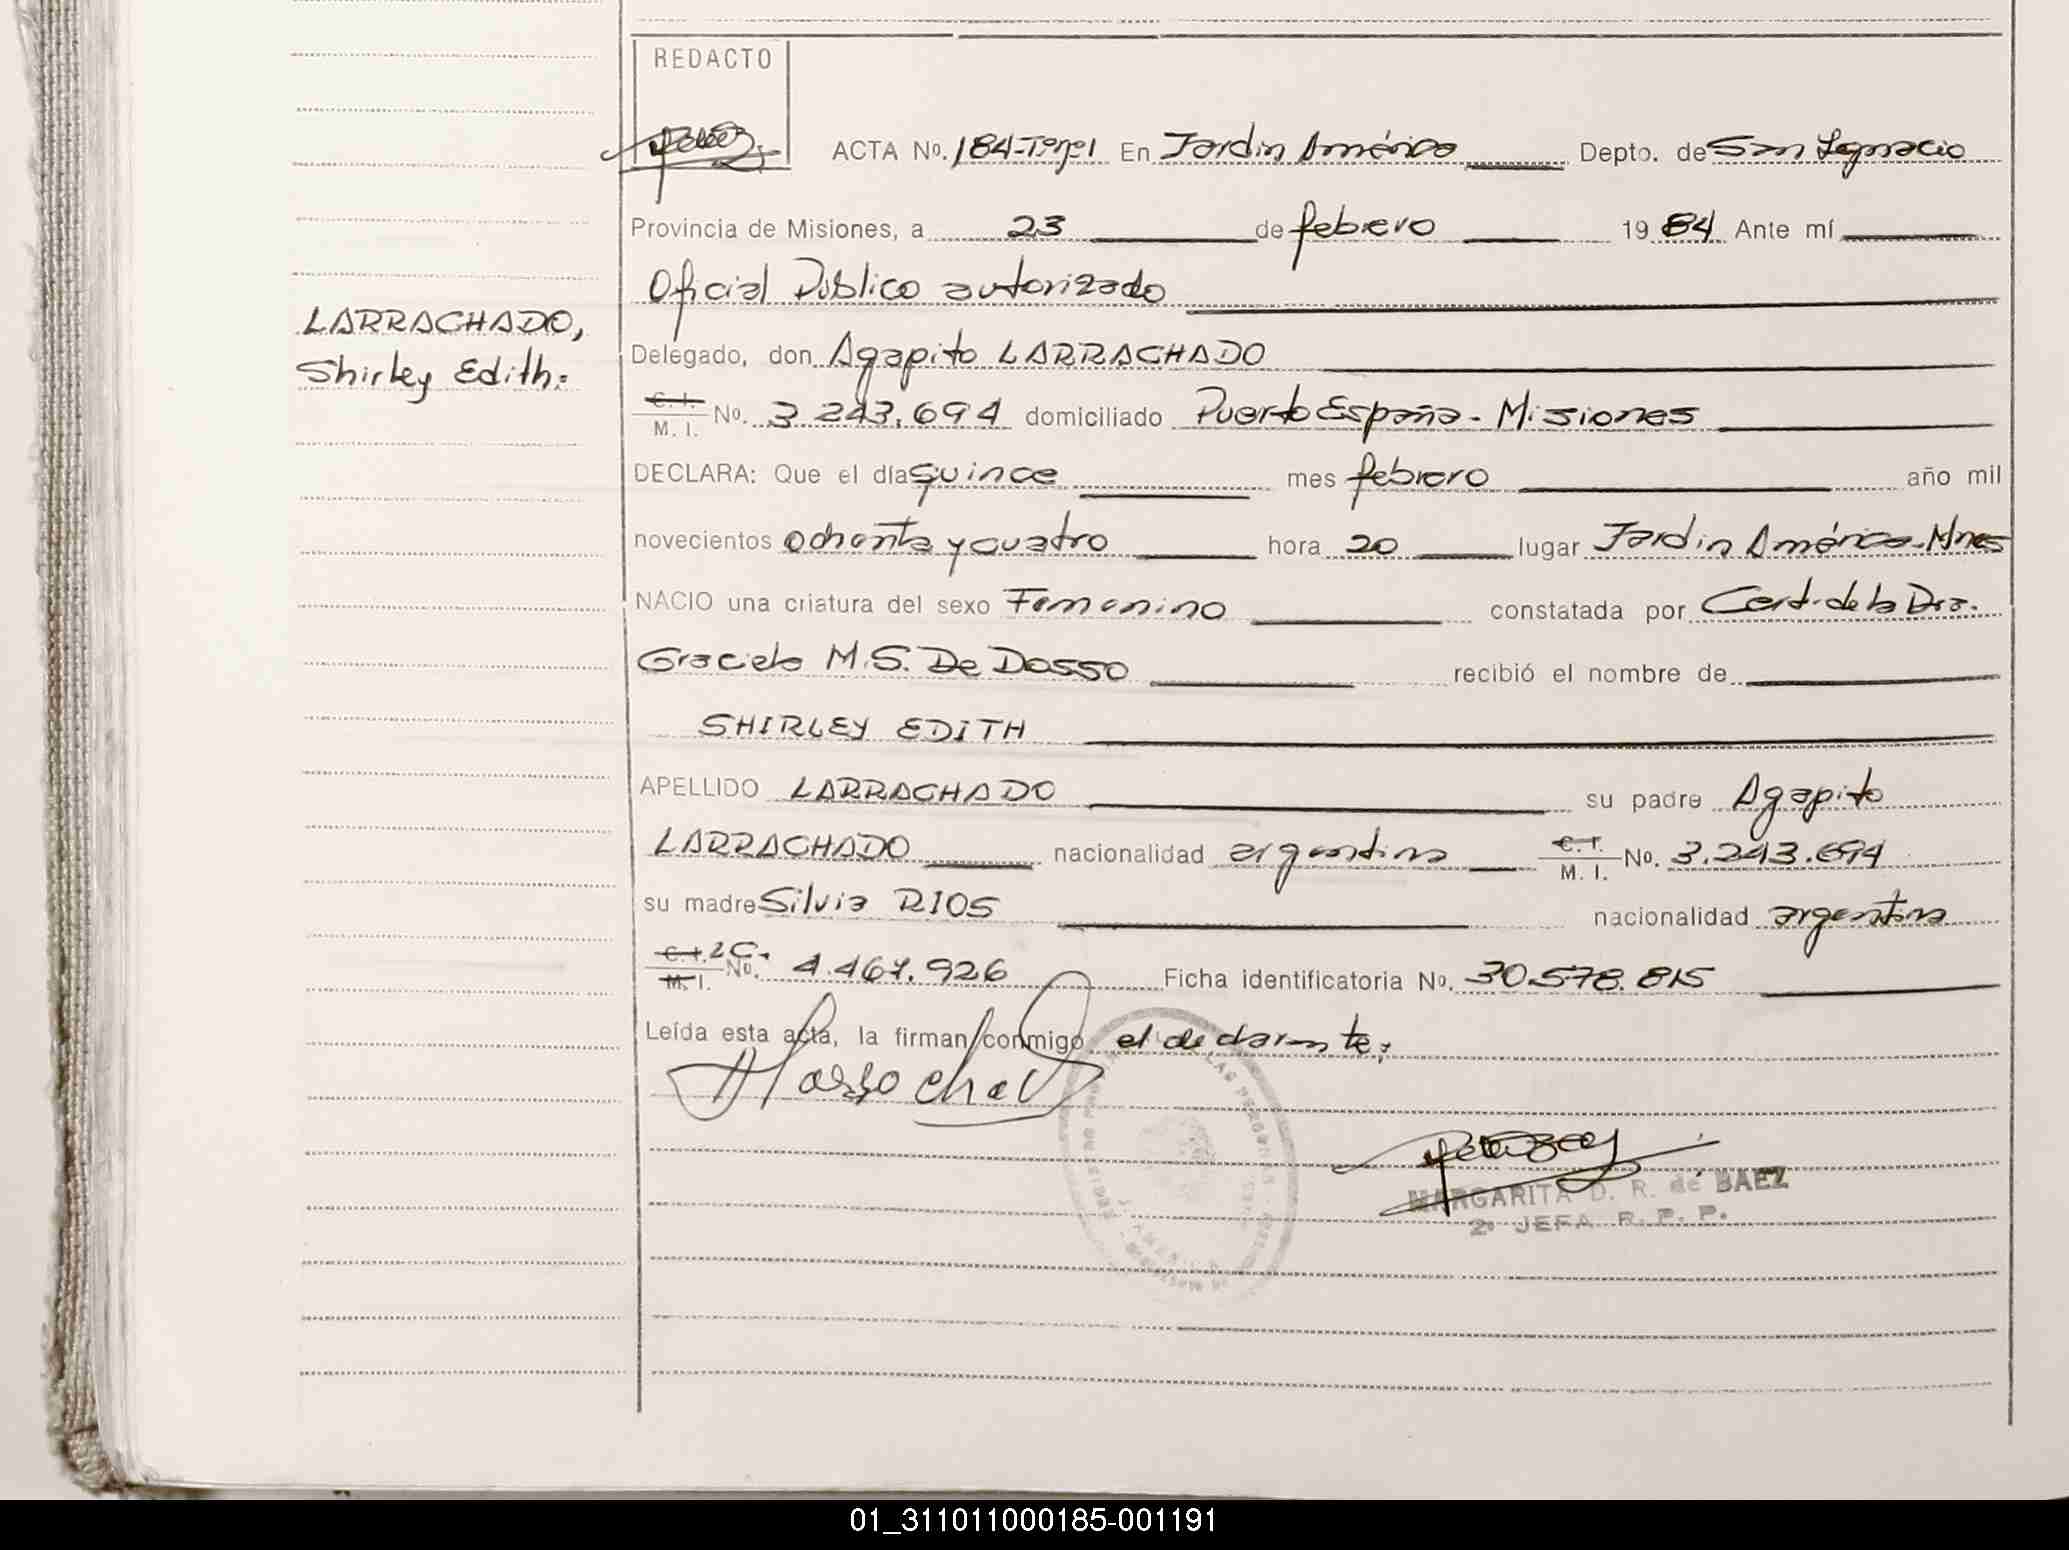 REDACTO
ACTA Nº. 184-Tº1º1 En Jardin América Depto. de San Ignacio
Provincia de Misiones, a 23 de febrero 19 84 Ante mí
Oficial Público autorizado
LARRACHADO,
Shirley Edith.-
Delegado, don Agapito LARRACHADO
C. I. / M. I. Nº. 3.243.694 domiciliado Puerto España - Misiones
DECLARA: Que el día quince mes febrero año mil
novecientos ochenta y cuatro hora 20 lugar Jardin América-Mnes
NACIO una criatura del sexo Femenino constatada por Cert. de la Dra.
Graciela M.S. De Dosso recibió el nombre de
SHIRLEY EDITH
APELLIDO LARRACHADO su padre Agapito
LARRACHADO nacionalidad argentina C. I. / M. I. Nº. 3.243.694
su madre Silvia RIOS nacionalidad argentina
C. I. / M. I. LC. Nº. 4.467.926 Ficha identificatoria Nº. 30.578.815
Leída esta acta, la firman conmigo el declarante;
MARGARITA D. R. de BAEZ
2º JEFA R. P. P.
01_311011000185-001191